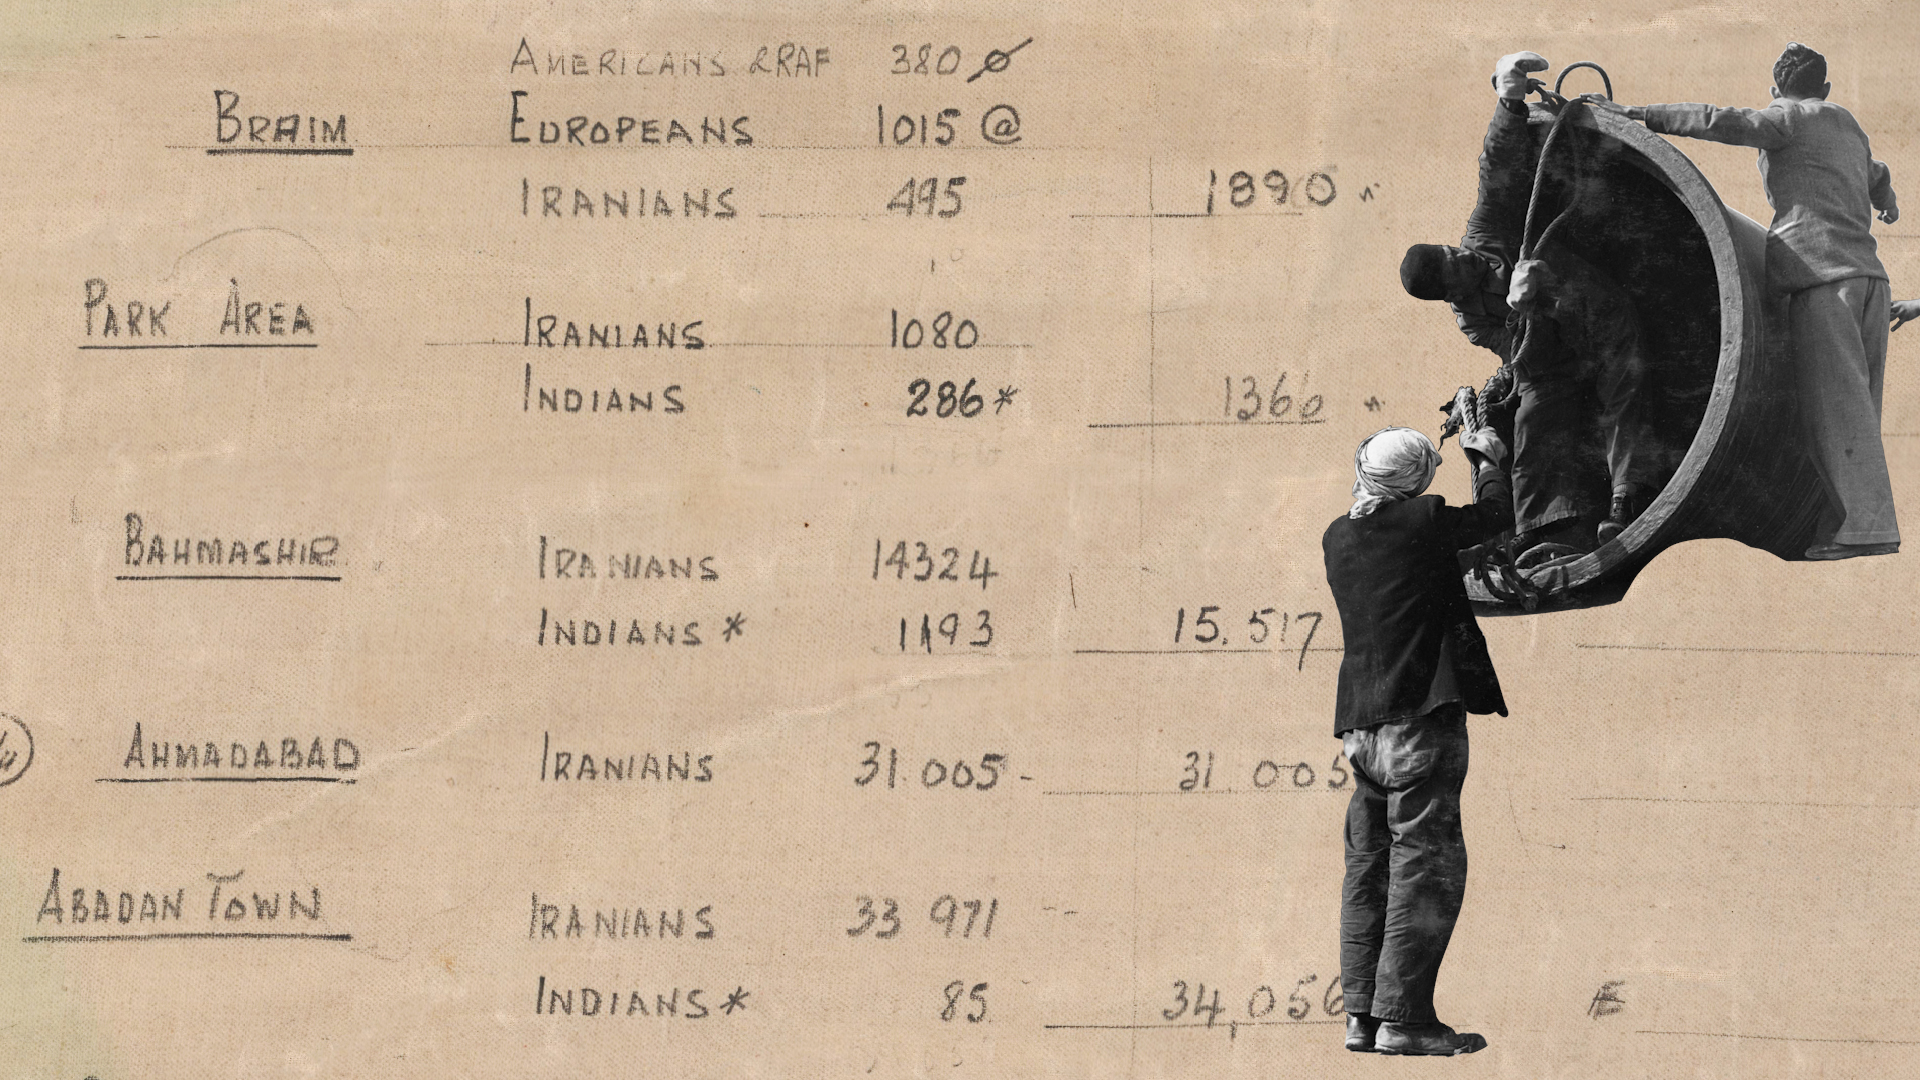 AMERICANS & RAF 380 ∅
BRAIM EUROPEANS 1015 @
IRANIANS 495 1890
PARK AREA IRANIANS 1080
INDIANS 286* 1366
BAHMASHIR IRANIANS 14324
INDIANS * 1193 15,517
AHMADABAD IRANIANS 31.005 - 31.005
ABADAN TOWN IRANIANS 33 971
INDIANS * 85 34,056